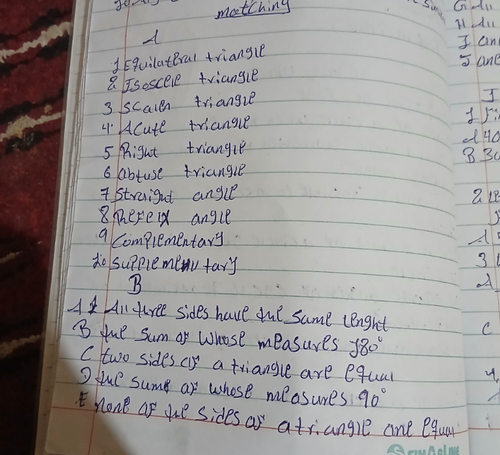 matching
A
1 Equilateral triangle
2 Isoscele triangle
3 scalen triangle
4 Acute triangle
5 Right triangle
6 obtuse triangle
7 straight angle
8 Refelx angle
9 complementary
10 supplementary
B
A All three sides have the same lenght
B the sum of whose measures 180°
C two sides of a triangle are equal
D the sume of whose measures 90°
E none of the sides of a triangle are equal